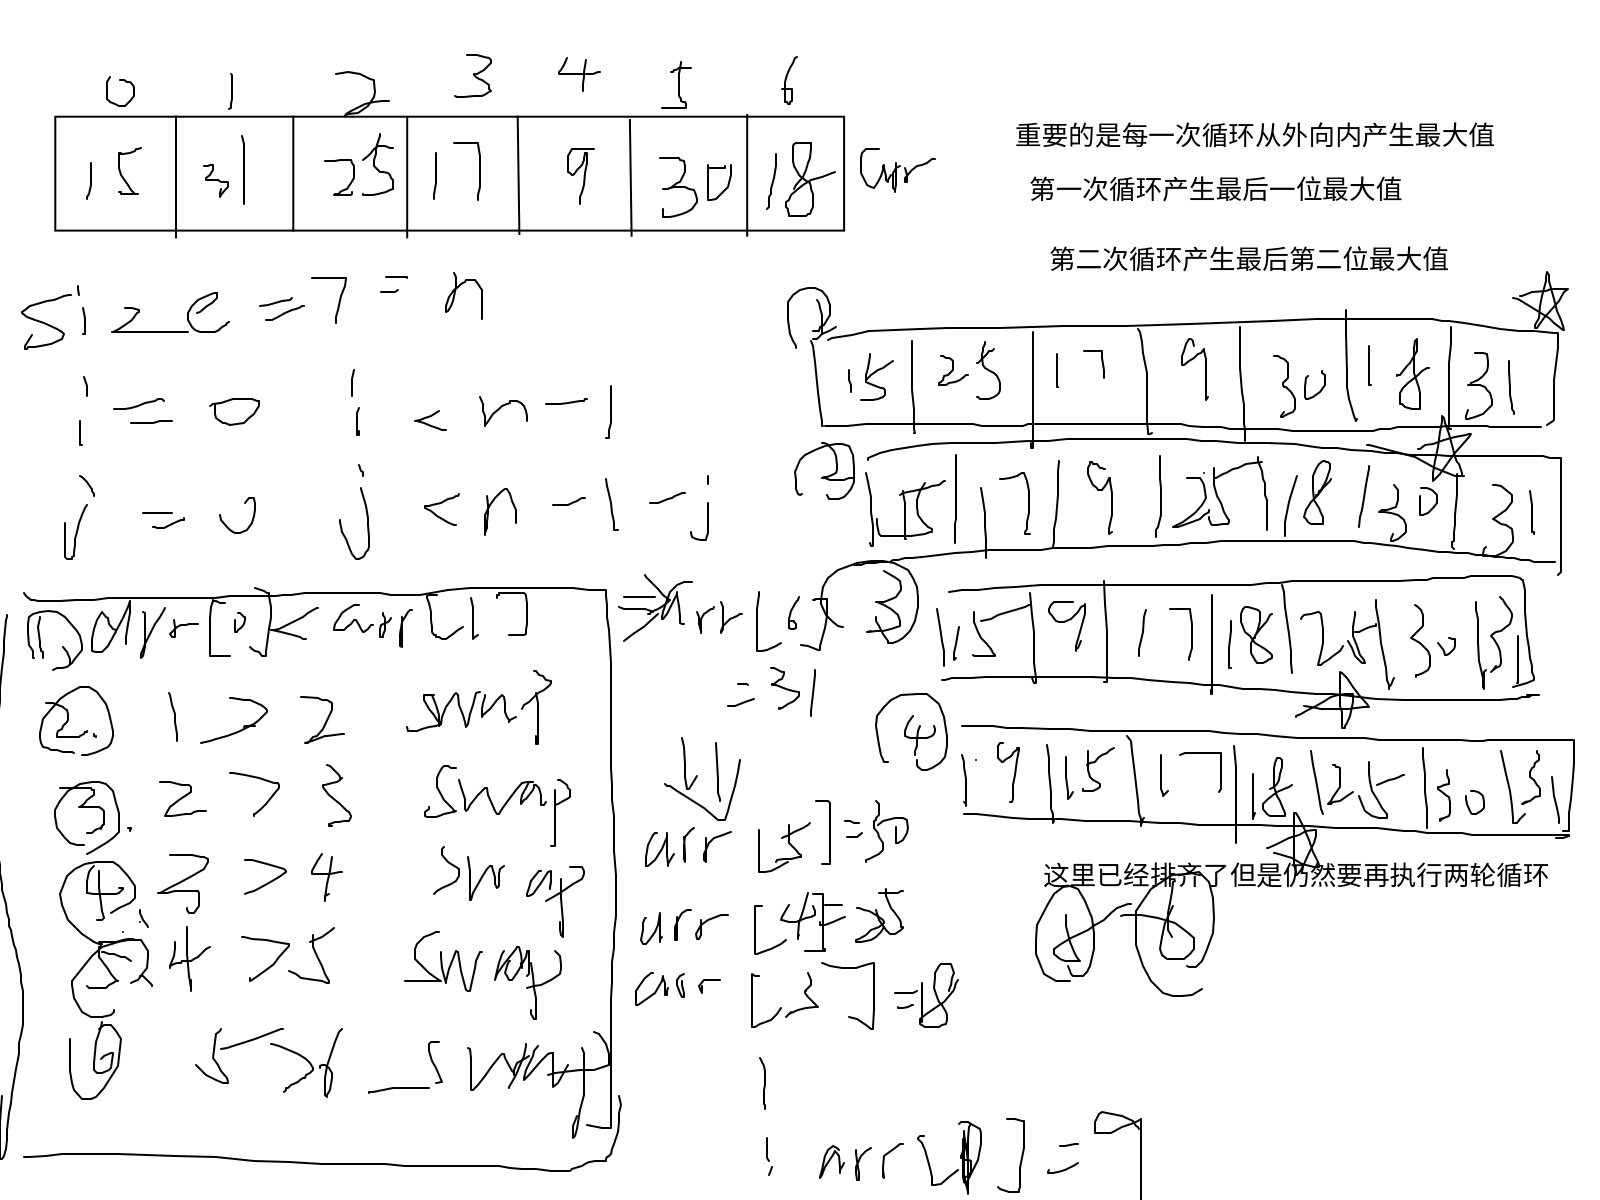 0 1 2 3 4 5 6
15 31 25 17 9 30 18 arr
重要的是每一次循环从外向内产生最大值
第一次循环产生最后一位最大值
第二次循环产生最后第二位最大值
size = 7 = n
i = 0 i < n - 1
j = 0 j < n - 1 - j
① arr[0] < arr[1]
②. 1 > 2 swap
③. 2 > 3 swap
④. 3 > 4 swap
⑤ 4 > 5 swap
⑥ 5 > 6 swap
⇒ arr[6]
= 31
arr [5] = 30
arr [4] = 25
arr [3] = 18
arr [0] = 9
① 15 25 17 9 30 18 31
② 15 17 9 25 18 30 31
③ 15 9 17 18 25 30 31
④ 9 15 17 18 25 30 31
这里已经排齐了但是仍然要再执行两轮循环
⑤ - ⑥